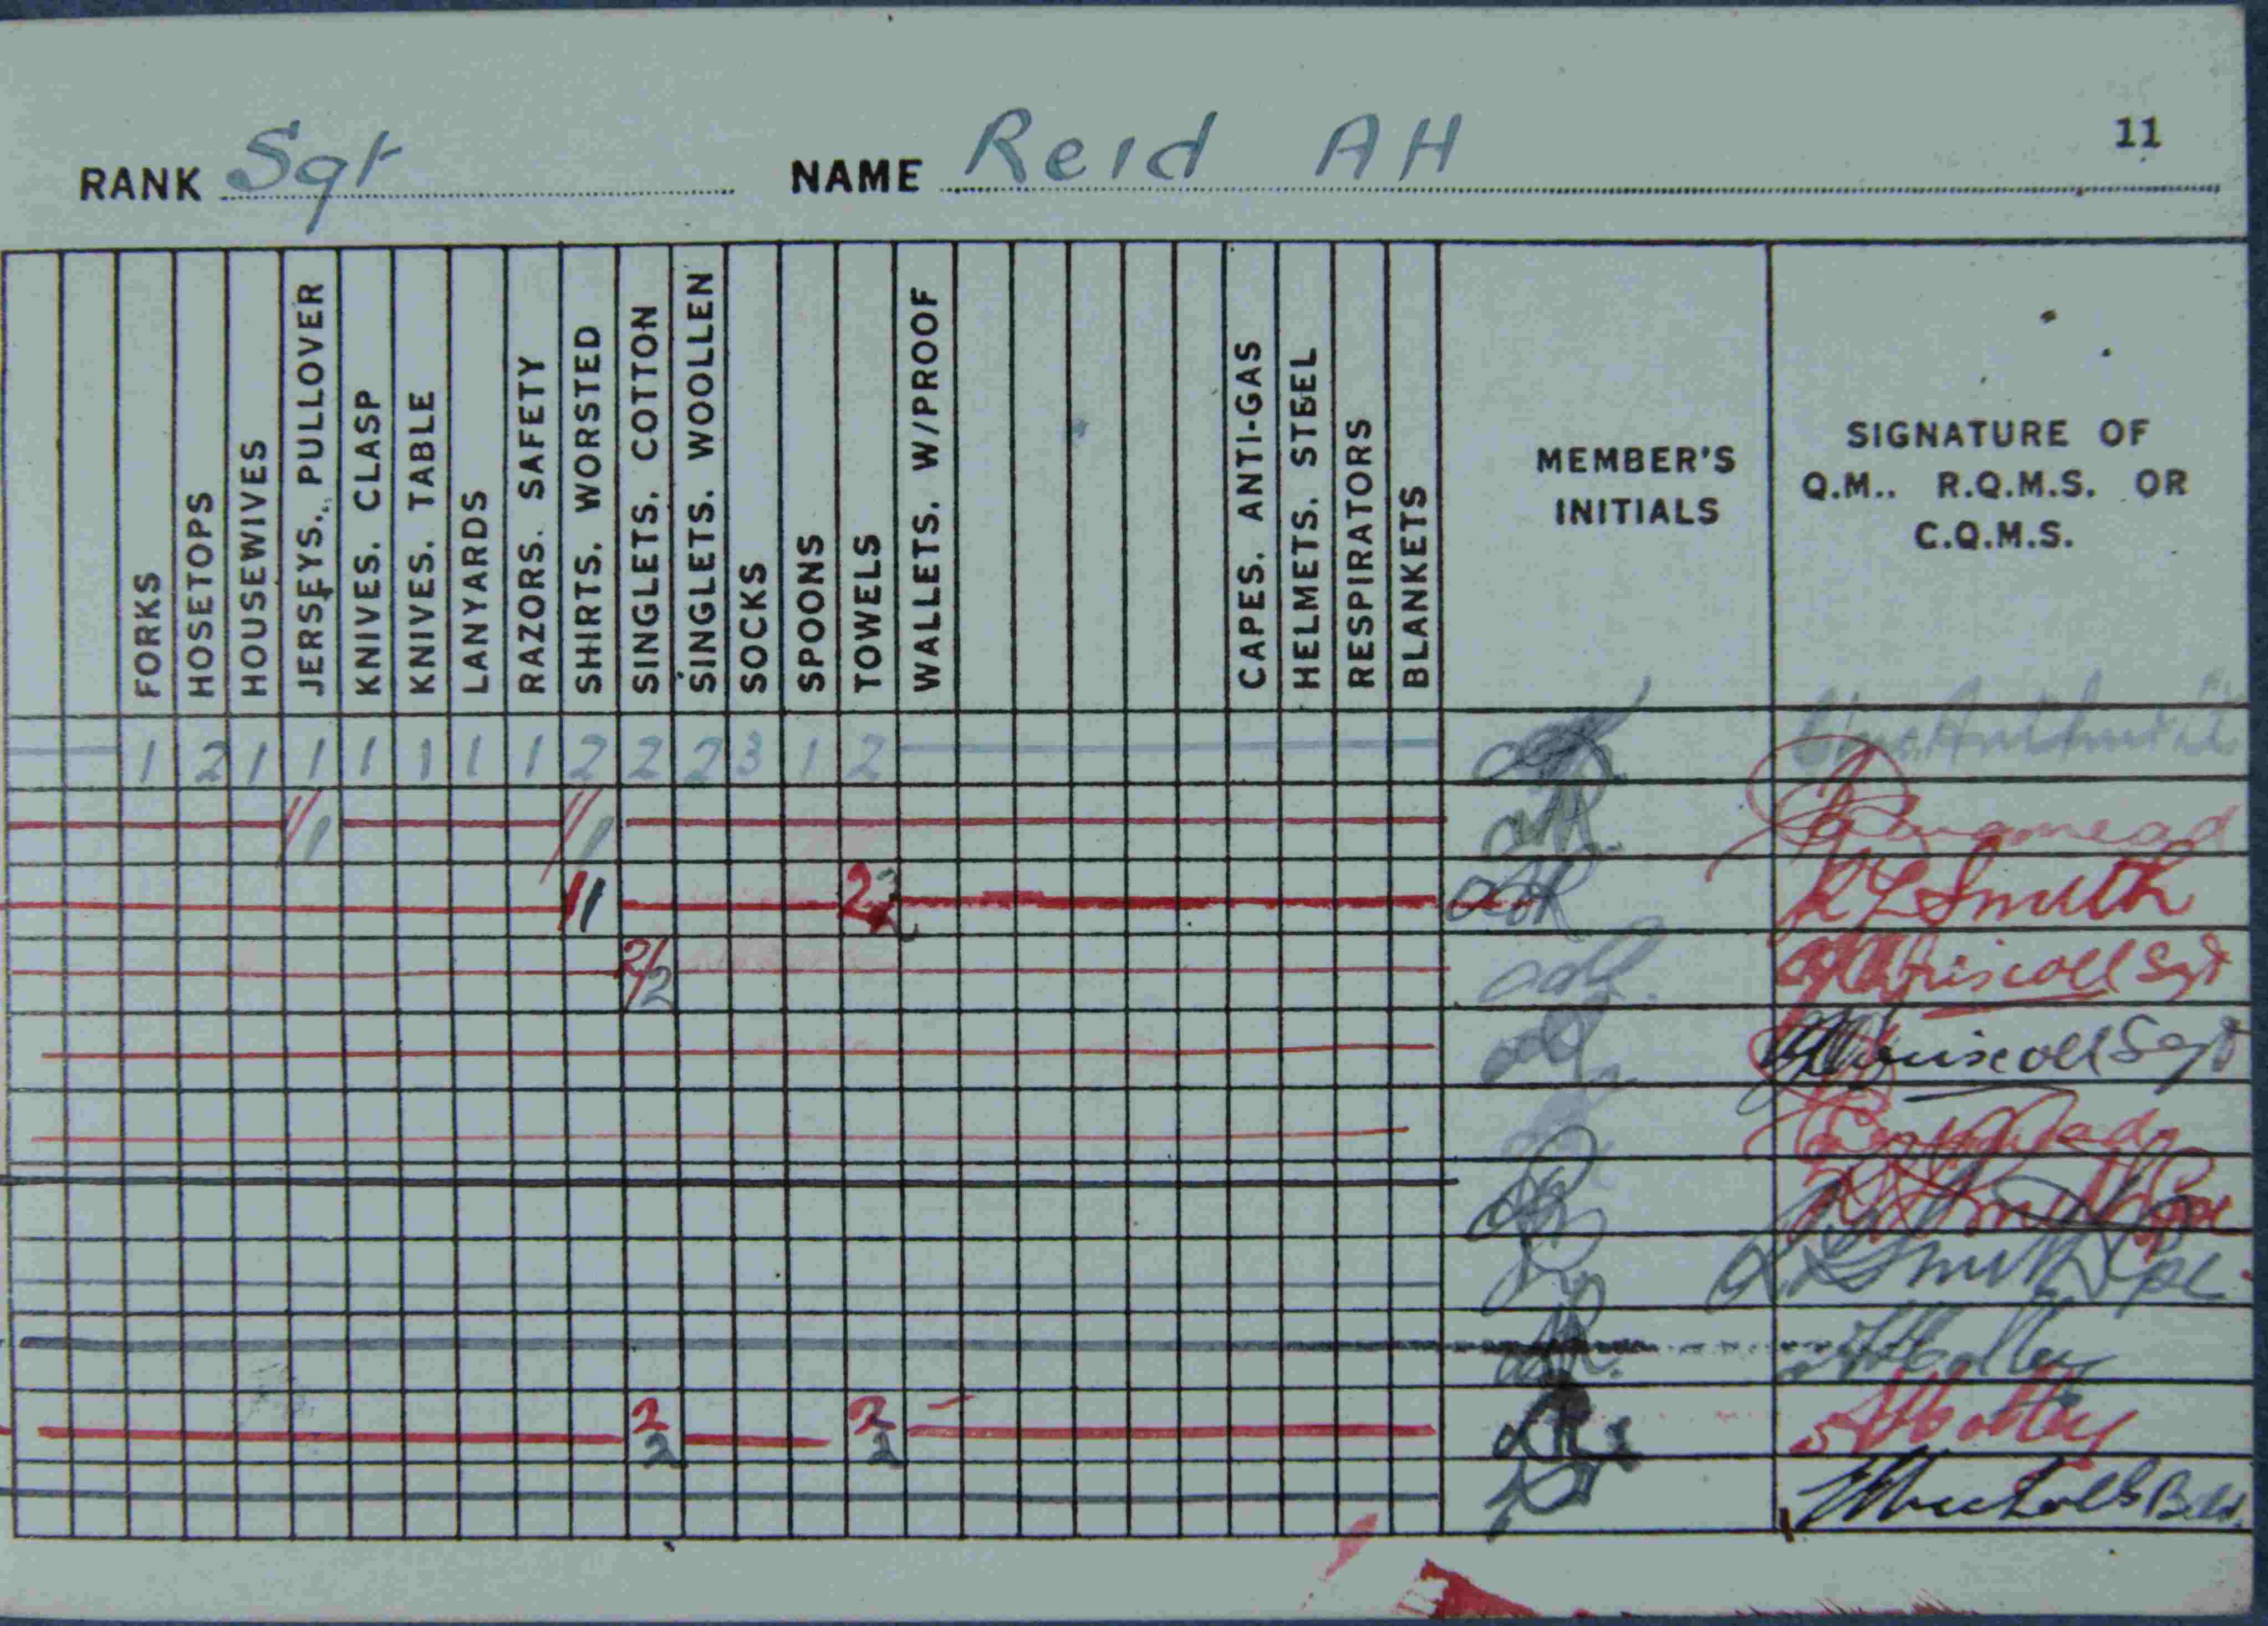 11
RANK Sgt NAME Reid AH
FORKS
HOSETOPS
HOUSEWIVES
JERSEYS, PULLOVER
KNIVES, CLASP
KNIVES, TABLE
LANYARDS
RAZORS, SAFETY
SHIRTS, WORSTED
SINGLETS, COTTON
SINGLETS, WOOLLEN
SOCKS
SPOONS
TOWELS
WALLETS, W/PROOF
CAPES, ANTI-GAS
HELMETS, STEEL
RESPIRATORS
BLANKETS
MEMBER'S
INITIALS
SIGNATURE OF
Q.M., R.Q.M.S. OR
C.Q.M.S.
1 2 1 1 1 1 1 1 2 2 2 3 1 2
1/1 1/1
1 1 2 2 AHR Smith
2/2 Driscoll Sgt
Driscoll Sgt
Smith Cpl
Smith Cpl
AHR
2 2
2 2